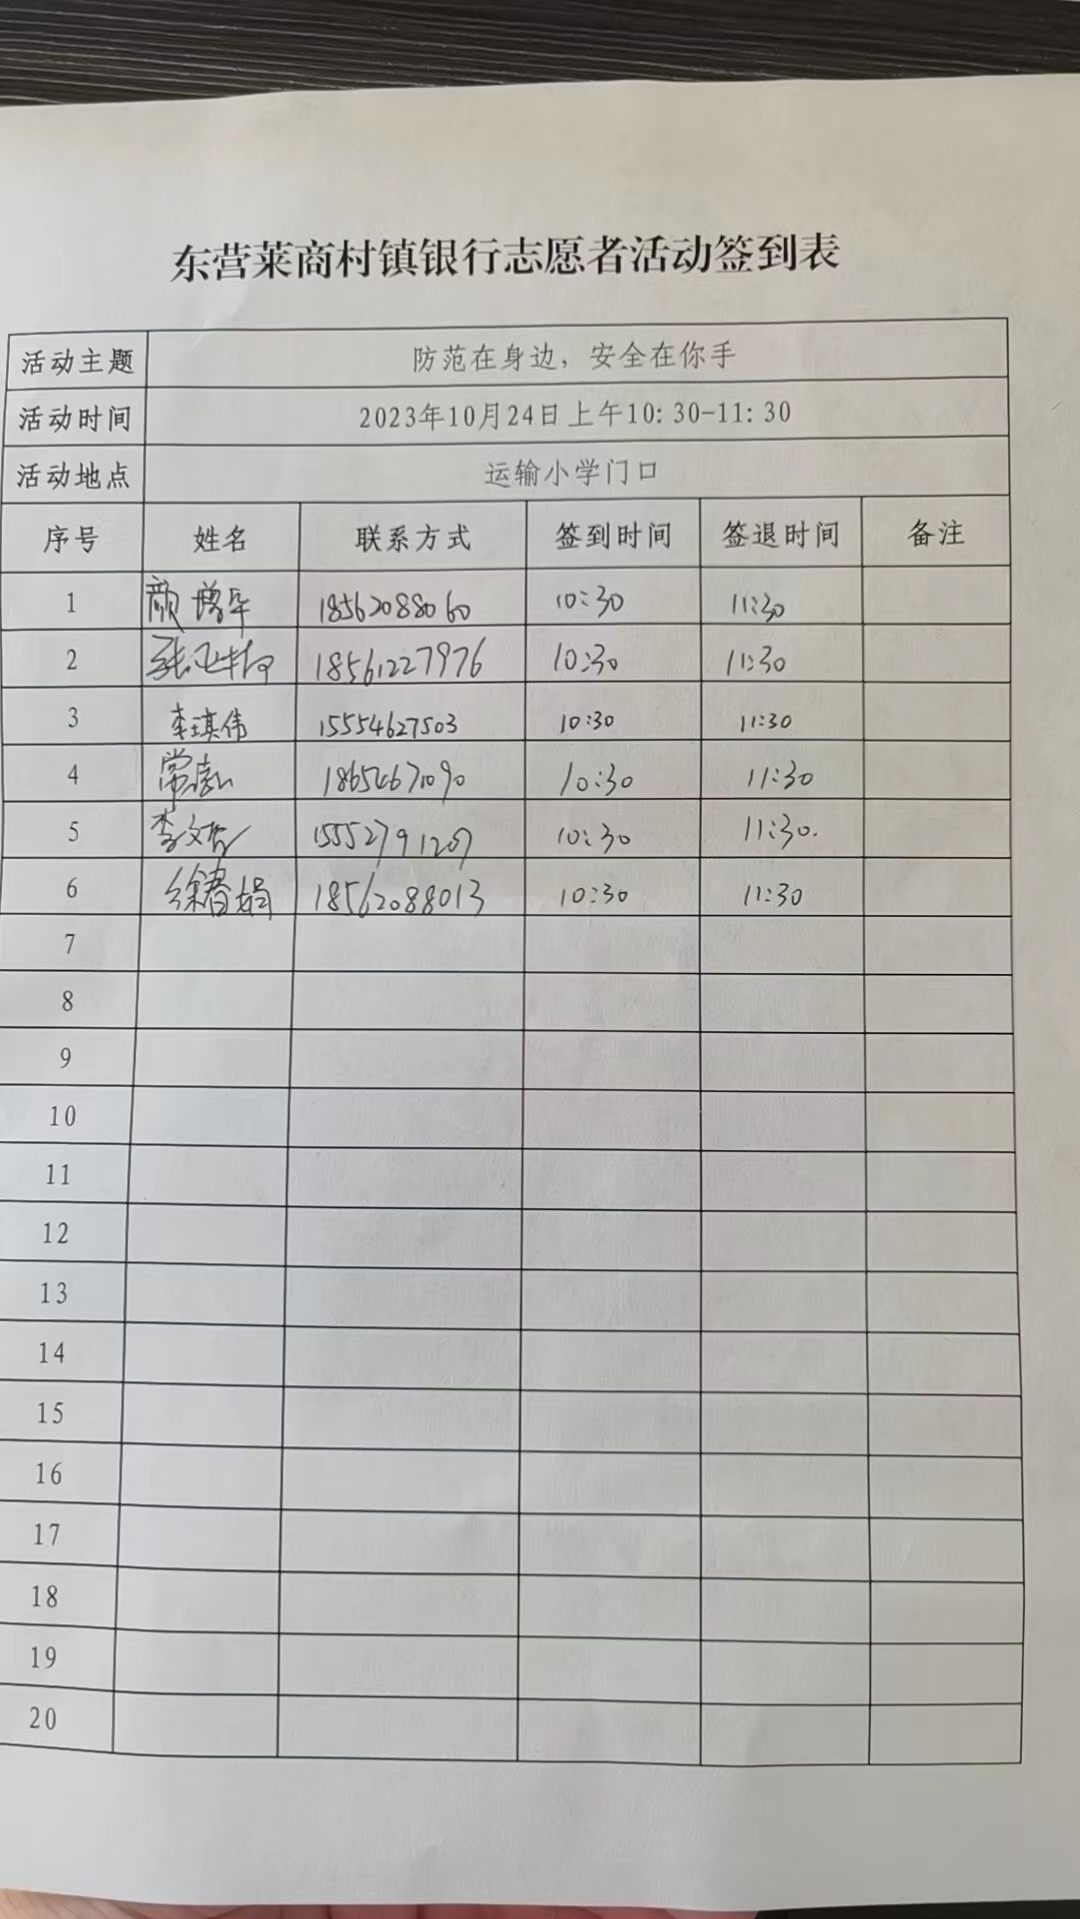 东营莱商村镇银行志愿者活动签到表
活动主题 防范在身边，安全在你手
活动时间 2023年10月24日上午10:30-11:30
活动地点 运输小学门口
序号 姓名 联系方式 签到时间 签退时间 备注
1 颜增华 18562088060 10:30 11:30
2 张 18561227976 10:30 11:30
3 李琪伟 15554627503 10:30 11:30
4 常 18654671090 10:30 11:30
5 李文 15552791207 10:30 11:30.
6 徐春娟 18562088013 10:30 11:30
7
8
9
10
11
12
13
14
15
16
17
18
19
20